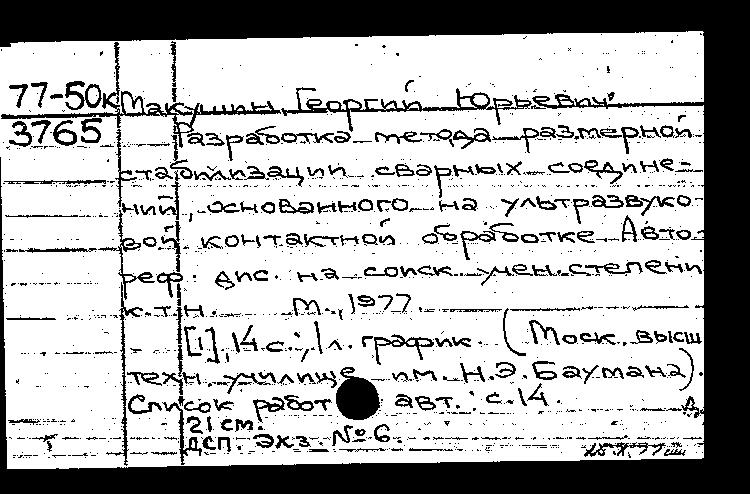 77-50к Макушин, Георгий Юрьевич.
3765 Разработка метода размерной
стабилизации сварных соедине-
ний, основанного на ультразвуко-
вой контактной обработке Авто-
реф. дис. на соиск учен. степени
к.т.н. М., 1977.
[1], 14 с.; 1 л. график. (Моск. высш
техн. училище им. Н.Э. Баумана).
Список работ авт.: с. 14.
21 см.
ДСП. Экз. № 6.